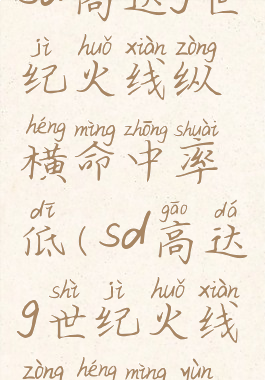 sd高达g世
jì huǒ xiàn zòng
纪火线纵
héng mìng zhōng shuài
横命中率
dī gāo dá
低(sd高达
shì jì huǒ xiàn
g世纪火线
zòng héng mìng yùn